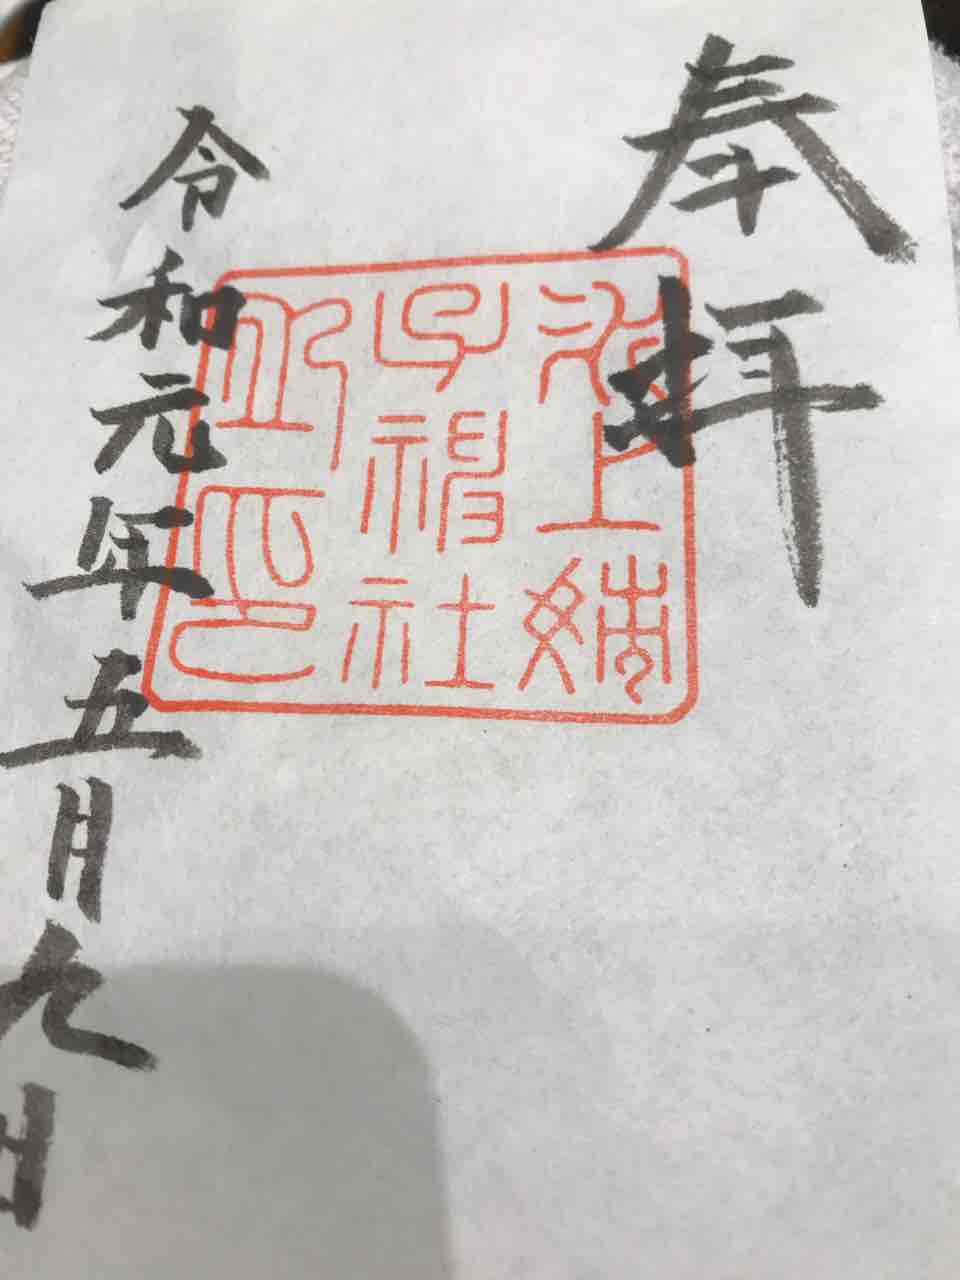 奉拝
氷上姉
子神社
之印
令和元年五月九日